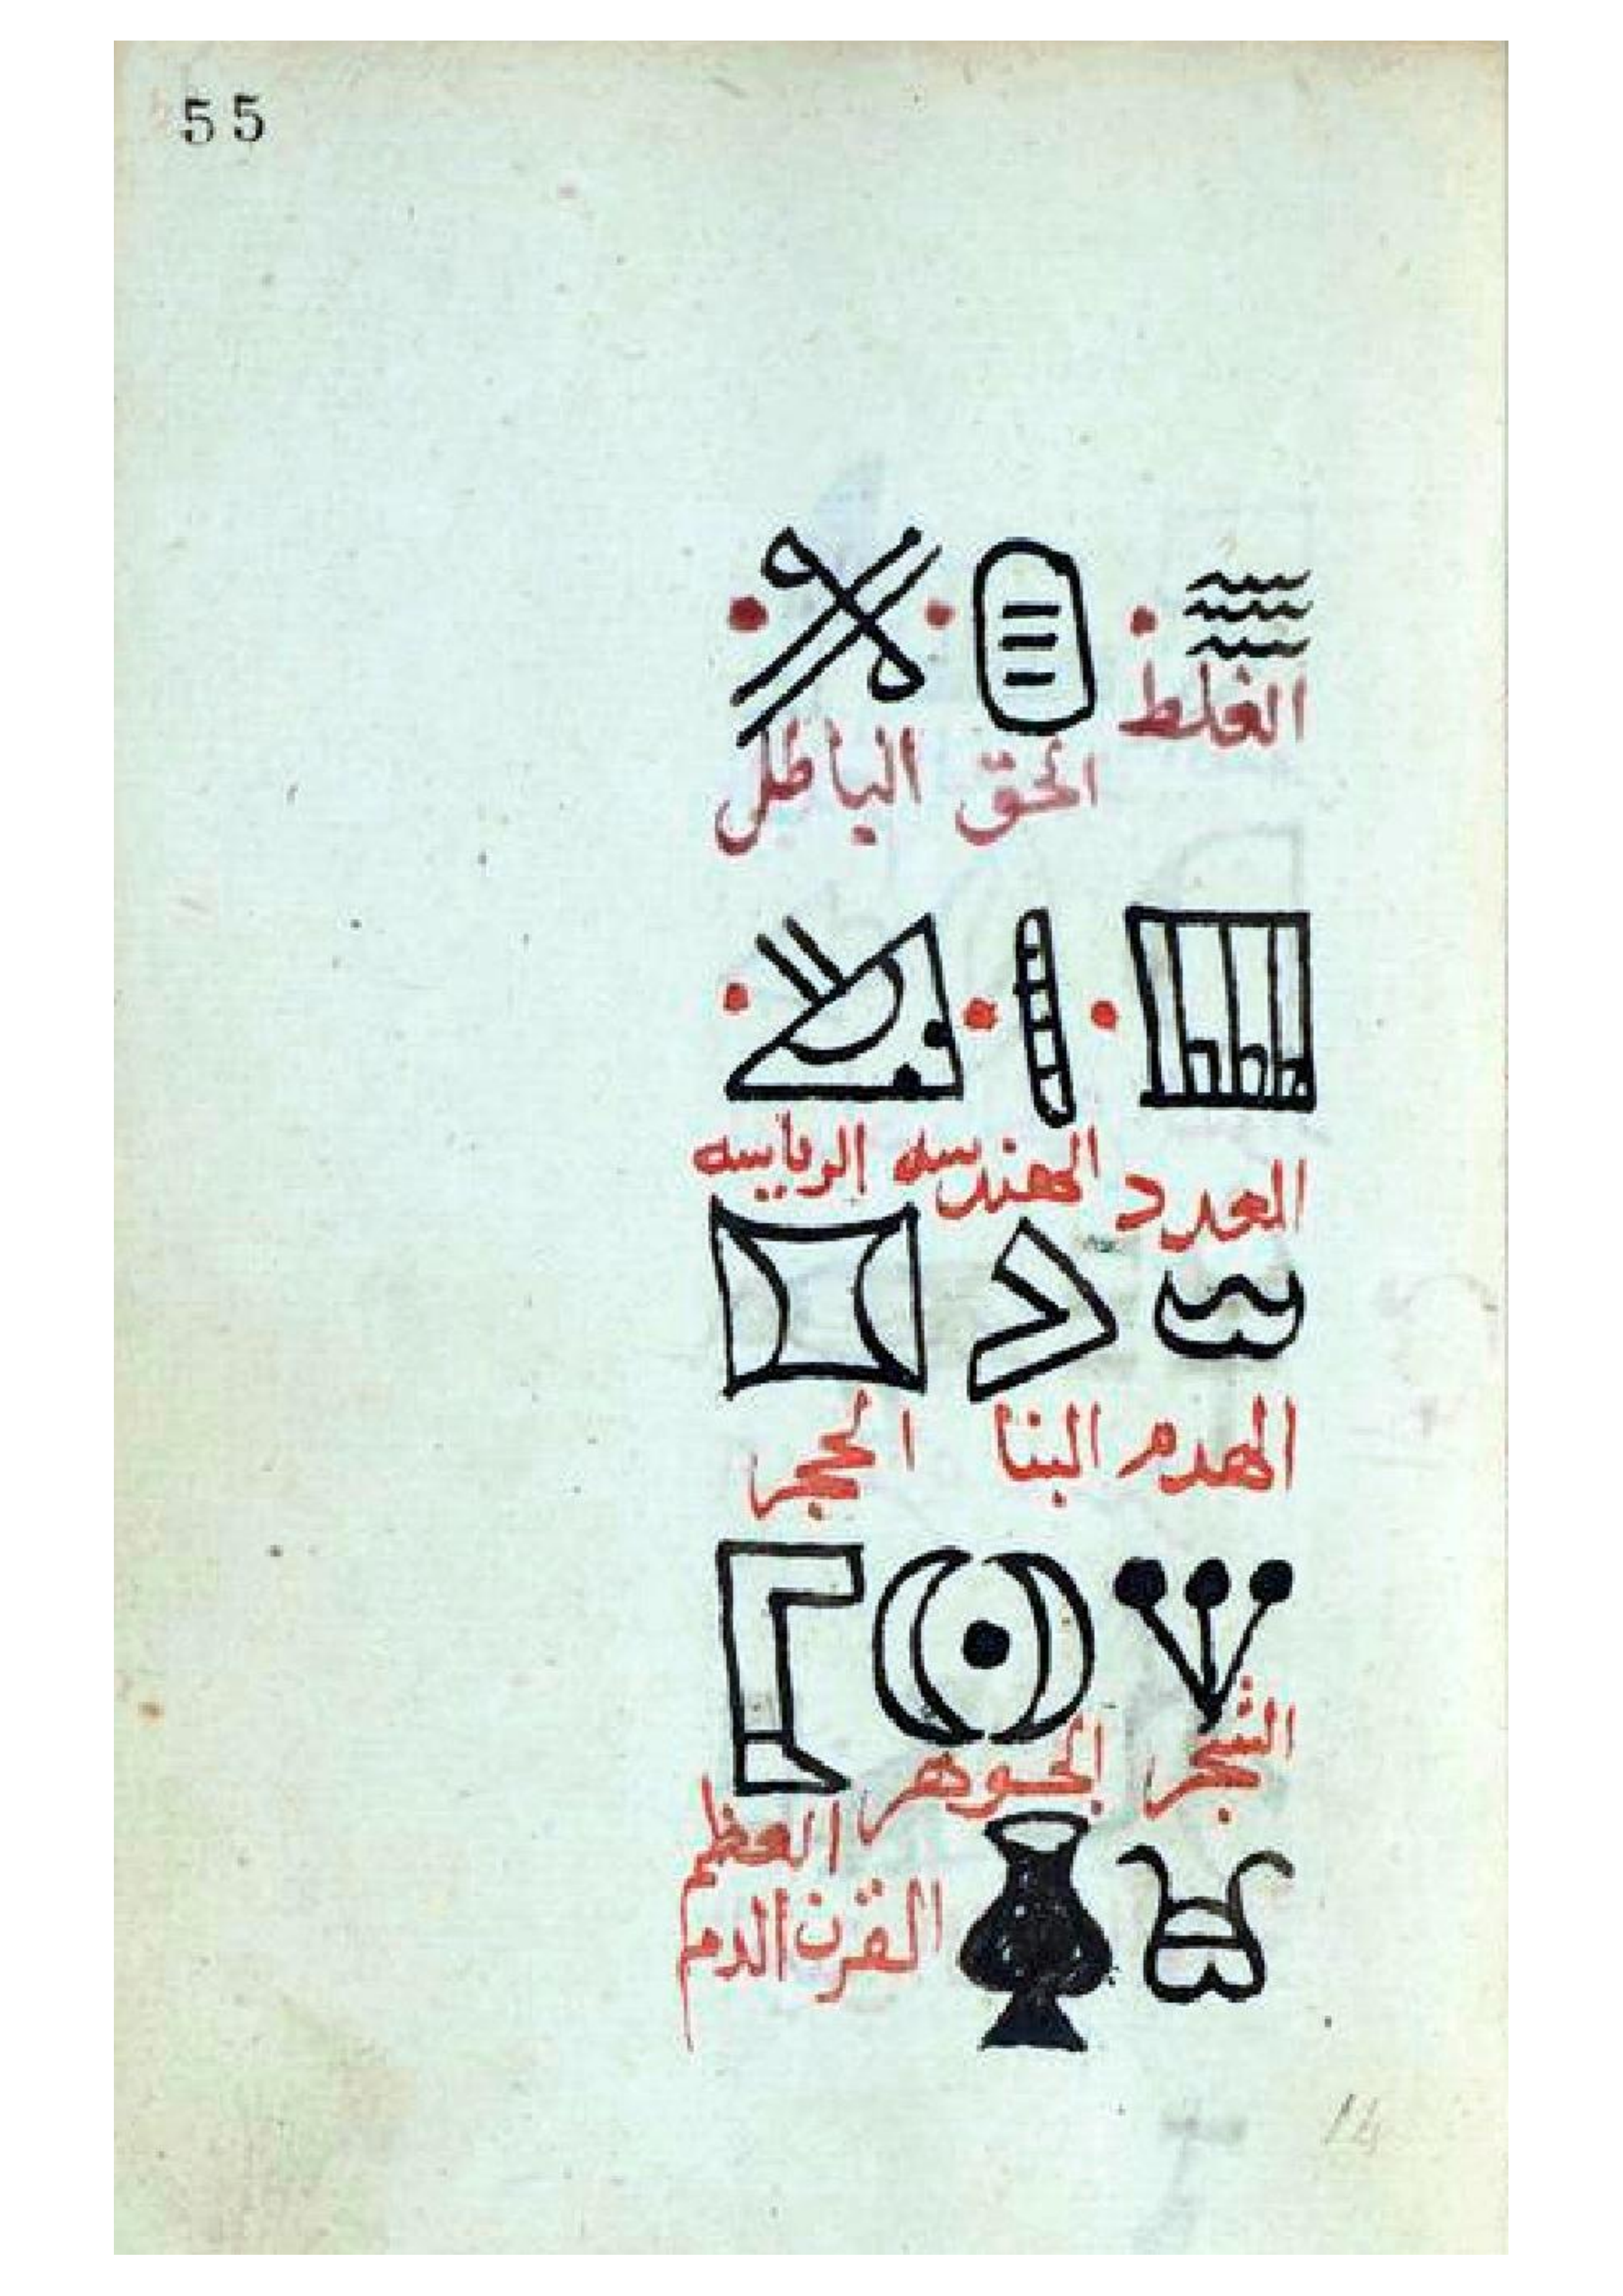 55
الغلط
الحق الباطل
العدد الهندسه الرياسه
الهدم البنا الحجر
الشجر الجوهر العظم
القرن الدم